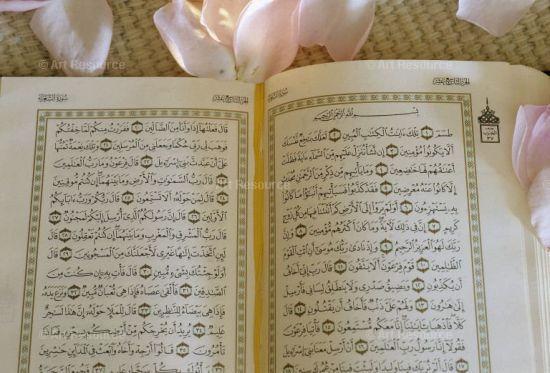 © Art Resource
© Art Resource
الجزء التاسع عشر
سورة الشعراء
بِسْمِ اللَّهِ الرَّحْمَٰنِ الرَّحِيمِ
طسٓمٓ ١ تِلْكَ ءَايَٰتُ ٱلْكِتَٰبِ ٱلْمُبِينِ ٢ لَعَلَّكَ بَٰخِعٌ نَّفْسَكَ
أَلَّا يَكُونُوا۟ مُؤْمِنِينَ ٣ إِن نَّشَأْ نُنَزِّلْ عَلَيْهِم مِّنَ ٱلسَّمَآءِ ءَايَةً فَظَلَّتْ
أَعْنَٰقُهُمْ لَهَا خَٰضِعِينَ ٤ وَمَا يَأْتِيهِم مِّن ذِكْرٍ مِّنَ ٱلرَّحْمَٰنِ مُحْدَثٍ
إِلَّا كَانُوا۟ عَنْهُ مُعْرِضِينَ ٥ فَقَدْ كَذَّبُوا۟ فَسَيَأْتِيهِمْ أَنۢبَٰٓؤُا۟ مَا كَانُوا۟
بِهِۦ يَسْتَهْزِءُونَ ٦ أَوَلَمْ يَرَوْا۟ إِلَى ٱلْأَرْضِ كَمْ أَنۢبَتْنَا فِيهَا مِن كُلِّ زَوْجٍ
كَرِيمٍ ٧ إِنَّ فِى ذَٰلِكَ لَءَايَةً وَمَا كَانَ أَكْثَرُهُم مُّؤْمِنِينَ ٨ وَإِنَّ
رَبَّكَ لَهُوَ ٱلْعَزِيزُ ٱلرَّحِيمُ ٩ وَإِذْ نَادَىٰ رَبُّكَ مُوسَىٰٓ أَنِ ٱئْتِ ٱلْقَوْمَ
ٱلظَّٰلِمِينَ ١٠ قَوْمَ فِرْعَوْنَ أَلَا يَتَّقُونَ ١١ قَالَ رَبِّ إِنِّىٓ أَخَافُ
أَن يُكَذِّبُونِ ١٢ وَيَضِيقُ صَدْرِى وَلَا يَنطَلِقُ لِسَانِى فَأَرْسِلْ
إِلَىٰ هَٰرُونَ ١٣ وَلَهُمْ عَلَىَّ ذَنۢبٌ فَأَخَافُ أَن يَقْتُلُونِ ١٤ قَالَ
كَلَّا فَٱذْهَبَا بِـَٔايَٰتِنَآ إِنَّا مَعَكُم مُّسْتَمِعُونَ ١٥ فَأْتِيَا فِرْعَوْنَ
فَقُولَآ إِنَّا رَسُولُ رَبِّ ٱلْعَٰلَمِينَ ١٦ أَنْ أَرْسِلْ مَعَنَا بَنِىٓ إِسْرَٰٓءِيلَ
الجزء التاسع عشر
سورة الشعراء
قَالَ فَعَلْتُهَآ إِذًا وَأَنَا۠ مِنَ ٱلضَّآلِّينَ ٢٠ فَفَرَرْتُ مِنكُمْ لَمَّا خِفْتُكُمْ
فَوَهَبَ لِى رَبِّى حُكْمًا وَجَعَلَنِى مِنَ ٱلْمُرْسَلِينَ ٢١ وَتِلْكَ نِعْمَةٌ تَمُنُّهَا
عَلَىَّ أَنْ عَبَّدتَّ بَنِىٓ إِسْرَٰٓءِيلَ ٢٢ قَالَ فِرْعَوْنُ وَمَا رَبُّ ٱلْعَٰلَمِينَ
٢٣ قَالَ رَبُّ ٱلسَّمَٰوَٰتِ وَٱلْأَرْضِ وَمَا بَيْنَهُمَآ إِن كُنتُم مُّوقِنِينَ
٢٤ قَالَ لِمَنْ حَوْلَهُۥٓ أَلَا تَسْتَمِعُونَ ٢٥ قَالَ رَبُّكُمْ وَرَبُّ ءَابَآئِكُمُ
ٱلْأَوَّلِينَ ٢٦ قَالَ إِنَّ رَسُولَكُمُ ٱلَّذِىٓ أُرْسِلَ إِلَيْكُمْ لَمَجْنُونٌ ٢٧
قَالَ رَبُّ ٱلْمَشْرِقِ وَٱلْمَغْرِبِ وَمَا بَيْنَهُمَآ إِن كُنتُمْ تَعْقِلُونَ ٢٨ قَالَ
لَئِنِ ٱتَّخَذْتَ إِلَٰهًا غَيْرِى لَأَجْعَلَنَّكَ مِنَ ٱلْمَسْجُونِينَ ٢٩ قَالَ
أَوَلَوْ جِئْتُكَ بِشَىْءٍ مُّبِينٍ ٣٠ قَالَ فَأْتِ بِهِۦٓ إِن كُنتَ مِنَ
ٱلصَّٰدِقِينَ ٣١ فَأَلْقَىٰ عَصَاهُ فَإِذَا هِىَ ثُعْبَانٌ مُّبِينٌ ٣٢ وَنَزَعَ يَدَهُۥ
فَإِذَا هِىَ بَيْضَآءُ لِلنَّٰظِرِينَ ٣٣ قَالَ لِلْمَلَإِ حَوْلَهُۥٓ إِنَّ هَٰذَا لَسَٰحِرٌ
عَلِيمٌ ٣٤ يُرِيدُ أَن يُخْرِجَكُم مِّنْ أَرْضِكُم بِسِحْرِهِۦ فَمَاذَا
تَأْمُرُونَ ٣٥ قَالُوٓا۟ أَرْجِهْ وَأَخَاهُ وَٱبْعَثْ فِى ٱلْمَدَآئِنِ حَٰشِرِينَ